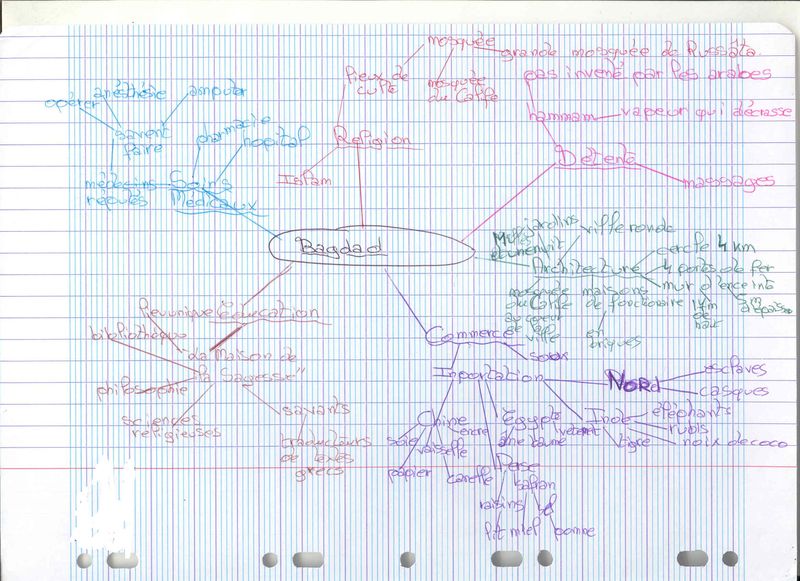 mosquée
grande mosquée de Russâta
lieux de
culte
mosquée
du Calife
Religion
Islam
pas invené par les arabes
hammam
vapeur qui décrasse
Détente
massages
opérer
anésthésie
amputer
savent
faire
pharmacie
hopital
médecins
réputés
Soins
Médicaux
Bagdad
jardins
ville ronde
Architecture
cercle 4 km
4 ports de fer
mur d'enceinte
mosquée
du Calife
au coeur
de la
ville
maisons
de fonctionaire
en
briques
17m
de
haut
lieu unique
Éducation
bibliothèque
"la Maison de
la Sagesse"
philosophie
sciences
religieuses
savants
traducteurs
de textes
grecs
Commerce
souk
Inportation
NORD
esclaves
casques
Chine
soie
encre
vaisselle
papier
canelle
Egypte
âne
baume
Inde
éléphants
rubis
noix de coco
tigre
Perse
safran
raisins
miel
pomme